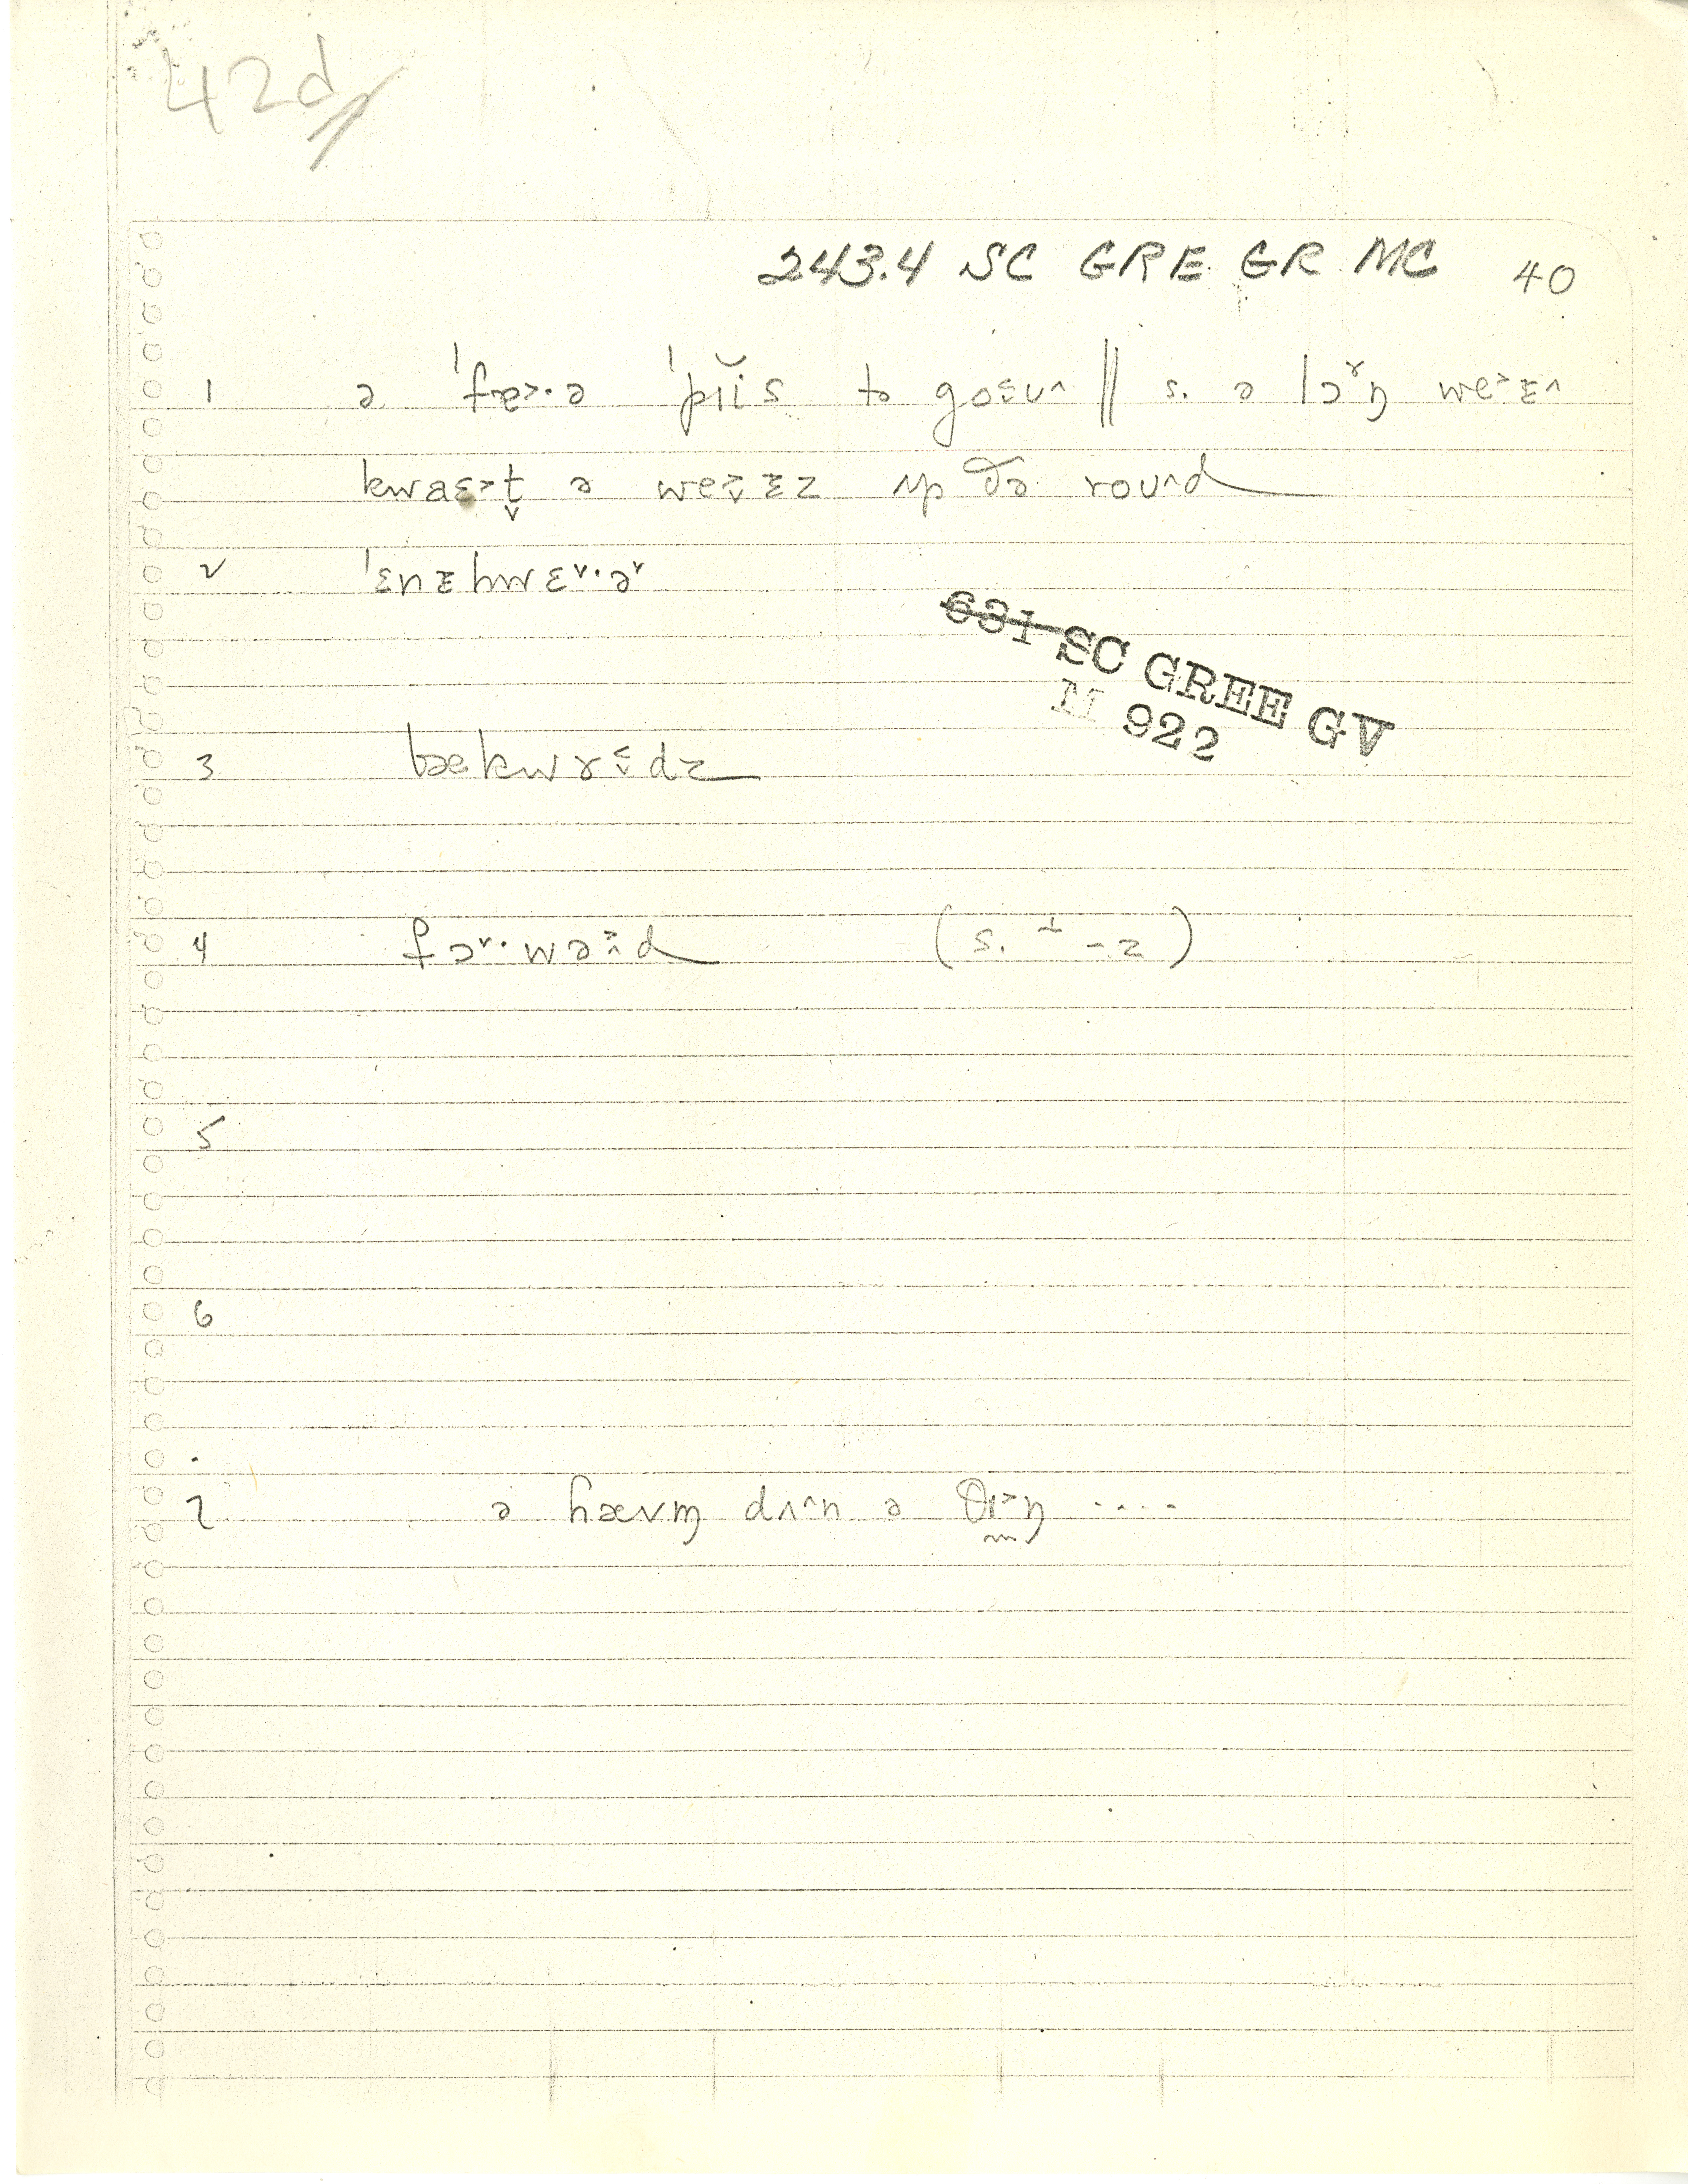 42d
243.4 SC GRE GR MC 40
1 ə ˈfɐ˃·ə ˈpɪ̆is tə goᵋʊ^ ‖ s. ə lɔ˅ŋ we˃ᴇ^
kwaɛ˃t̬ ə we˃̬ᴇz ʌp ðə roʊ^d
2 ˈɛnᴇhwɛ˅·ə˅
631 SC GREE GV
M 922
3 bækwɤ˂̬dz
4 fɔ˅·wə˃̂d (s. ⊥ -z)
5
6
7 ə hævm̩ dʌ^n ə θɪ˃ŋ ....